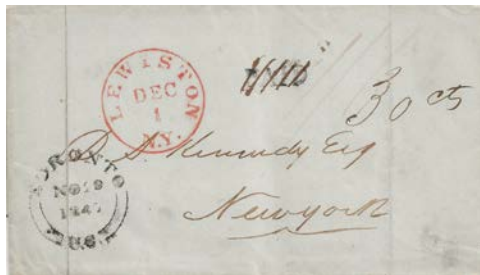 LEWISTON
DEC
1
N.Y.
30 cts
D D Kennedy Esq
New york
TORONTO
U.C.